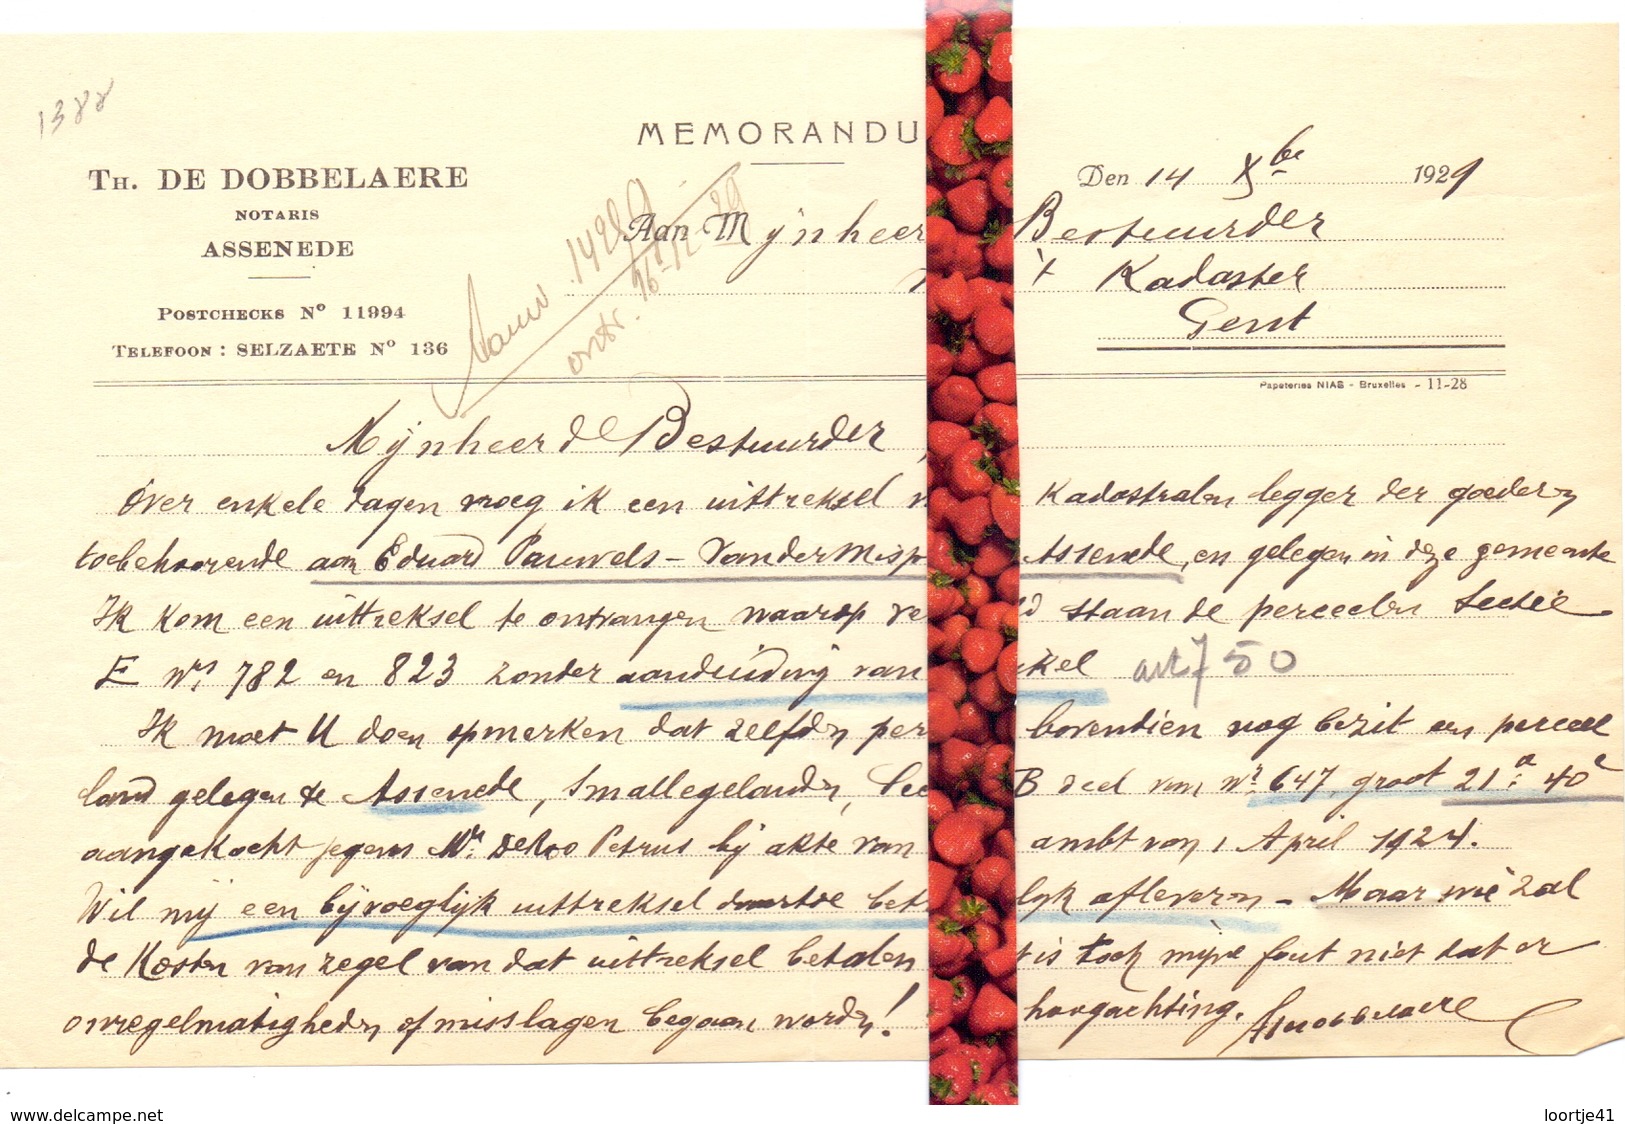 1388
MEMORANDU
TH. DE DOBBELAERE
NOTARIS
ASSENEDE
POSTCHECKS Nº 11994
TELEFOON : SELZAETE Nº 136
Den 14 Xbe 1929
Aan Mijnheer Bestuurder
't Kadaster
Gent
ontv. 16-12-29
Papeteries NIAS - Bruxelles - 11-28
Mijnheer de Bestuurder
Over enkele dagen vroeg ik een uittreksel Kadastralen legger der goederen
toebehoorende aan Eduard Pauwels - VanderMisp Assenede, en gelegen in deze gemeente
Ik kom een uittreksel te ontvangen waarop ve d staan de perceelen Sectie
E nrs 782 en 823 zonder aanduiding van kel art 750
Ik moet U doen opmerken dat zelfden per bovendien nog bezit een perceel
land gelegen te Assenede, Smallegelanden, Sec B deel van nr 647, groot 21a 40c
aangekocht jegens Mr. Deloo Petrus bij akte van ambt van 1 April 1924.
Wil mij een bijvoeglijk uittreksel daartoe bet lijk afleveren - Maar wie zal
de Kosten van zegel van dat uittreksel betalen t is toch mijne fout niet dat er
onregelmatigheden of misslagen begaan worden! hoogachting. Dobbelaere
www.delcampe.net
loortje41